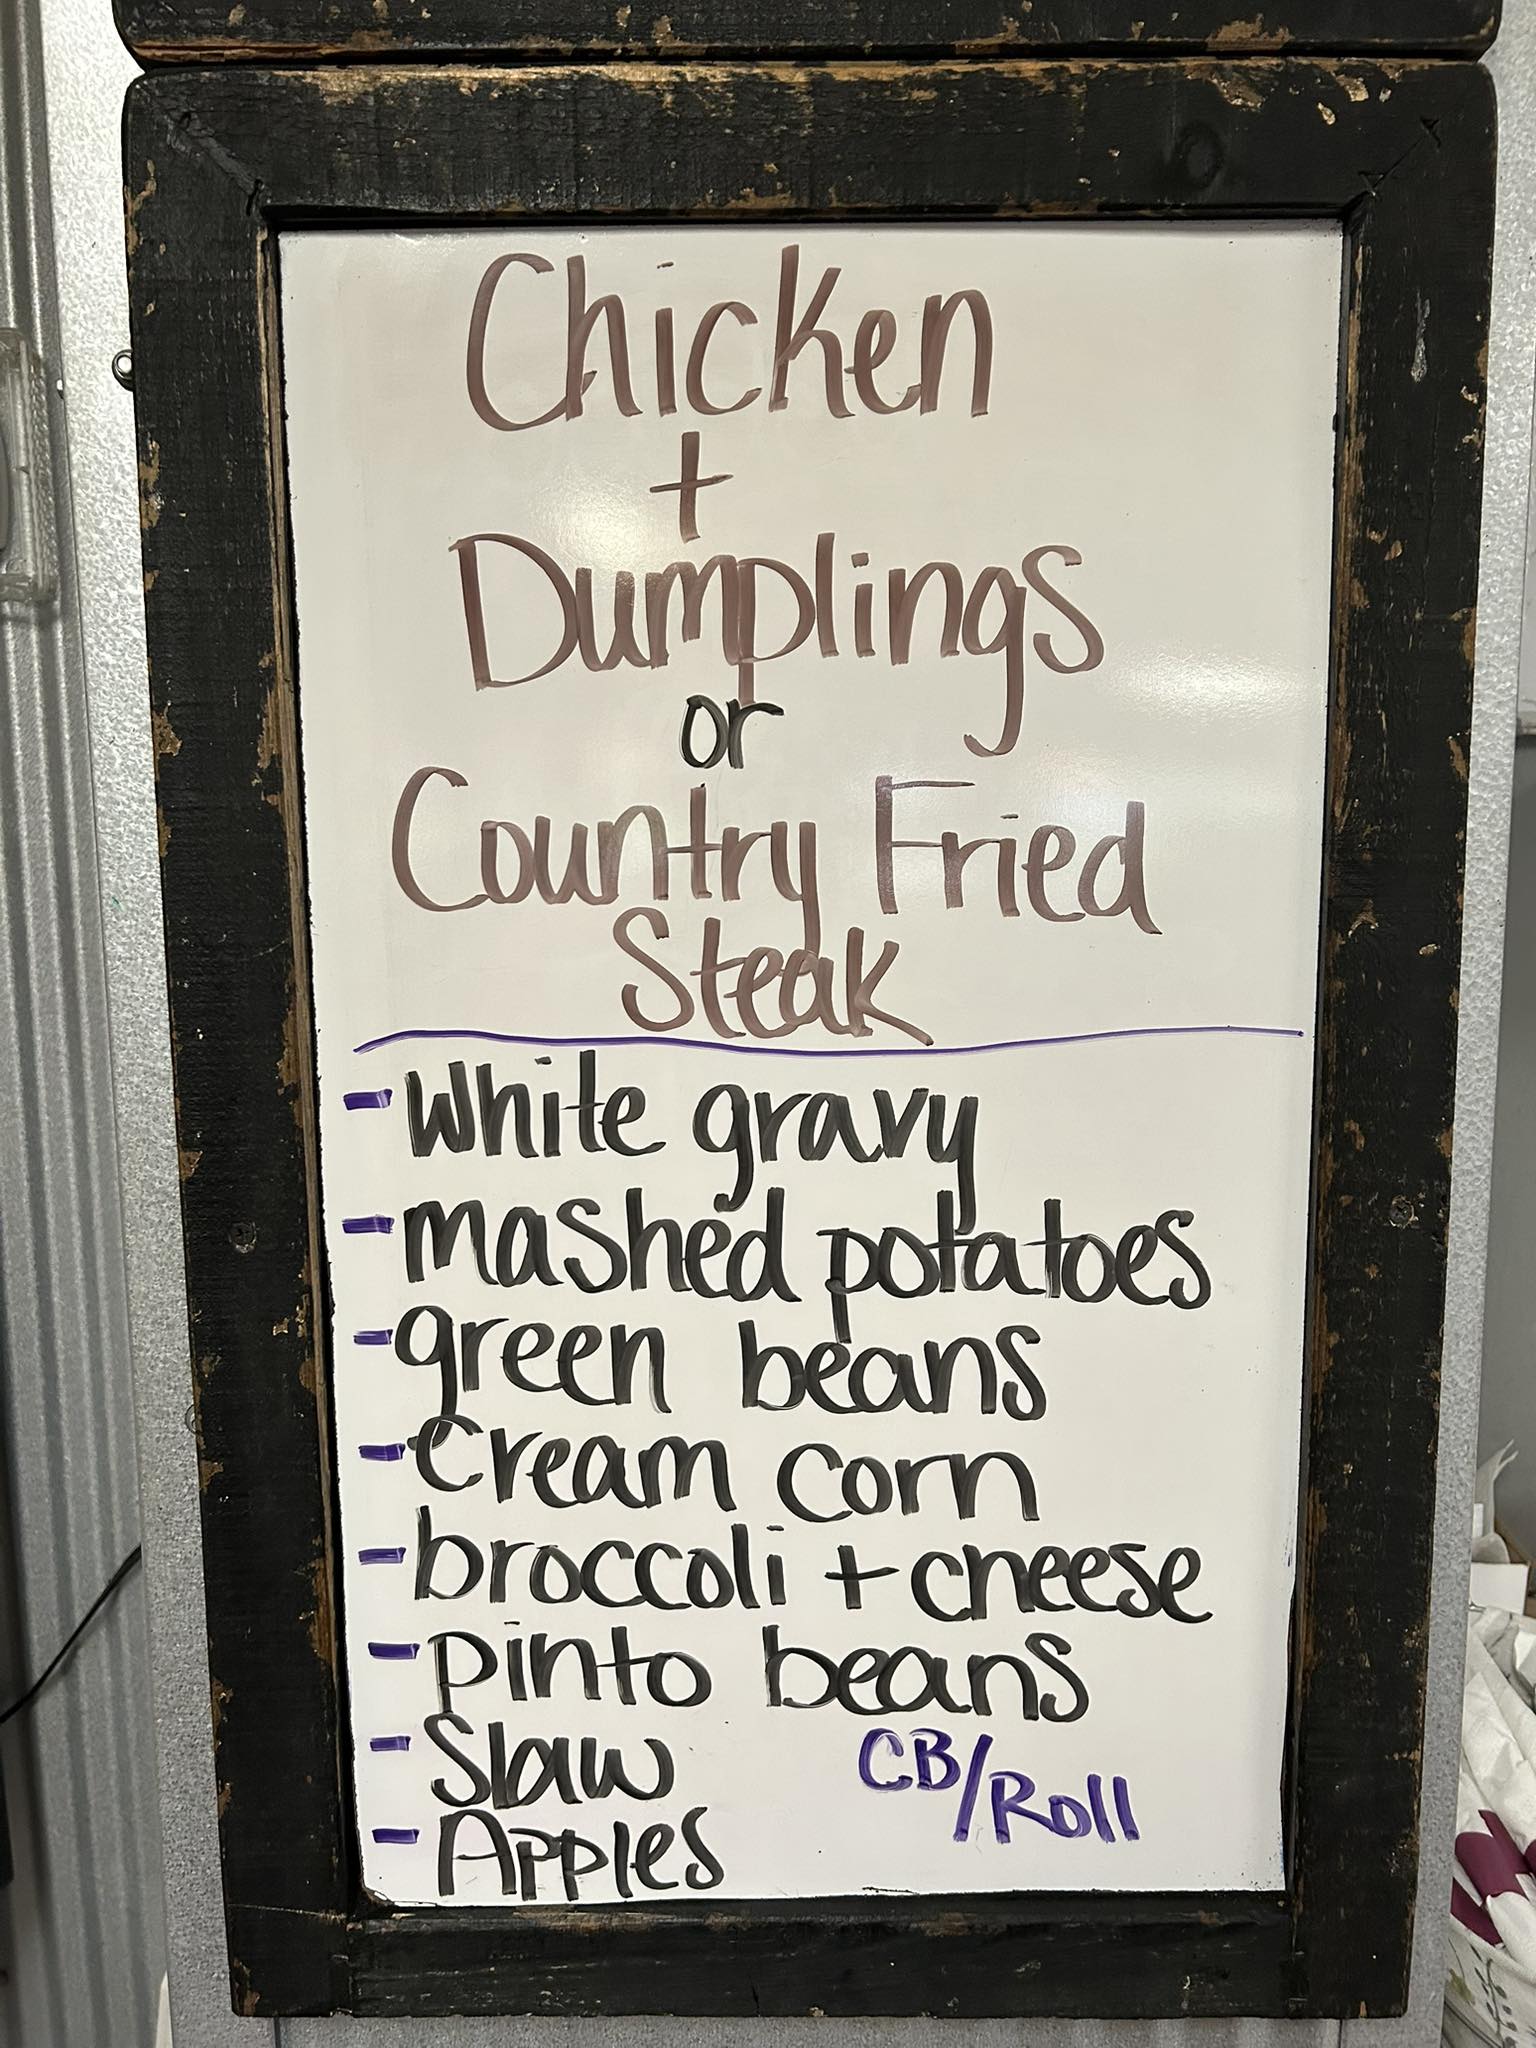 Chicken
+
Dumplings
or
Country Fried
Steak
- White gravy
- mashed potatoes
- green beans
- cream corn
- broccoli + cheese
- pinto beans
- Slaw
CB/Roll
- Apples